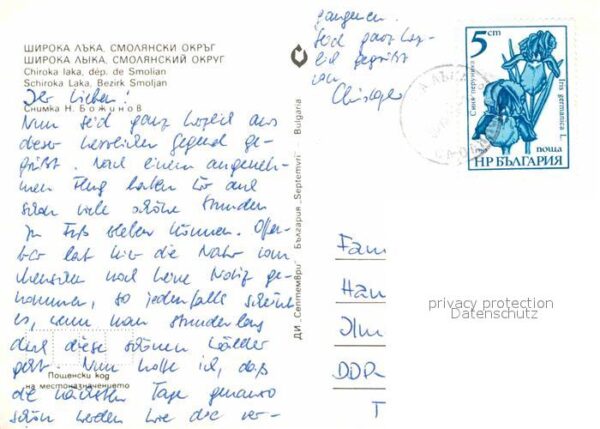 ШИРОКА ЛЪКА, СМОЛЯНСКИ ОКРЪГ
ШИРОКА ЛЫКА, СМОЛЯНСКИЙ ОКРУГ
Chiroka laka, dép. de Smolian
Schiroka Laka, Bezirk Smoljan
Ihr Lieben!
Снимка Н. Божинов
Nun seid ganz herzlich aus
dieser herrlichen Gegend ge-
grüßt. Nach einem angeneh-
men Flug hatten wir auch
schon viele schöne Stunden
zu Fuß erleben können. Offen-
bar hat hier die Natur vom
Menschen noch keine Notiz ge-
nommen, so jedenfalls scheint
es, wenn man stundenlang
durch diese schönen Wälder
geht. Nun hoffe ich, daß
Пощенски код
на местоназначението
die nächsten Tage genauso
schön werden wie die ver-
gangenen.
Seid ganz herz-
lich gegrüßt
von
ДИ „Септември" България „Septemvri" Bulgaria
5 cm
Синя перуника
Iris germanica L.
поща
НР БЪЛГАРИЯ
Fam
Han
Ilm
DDR-
T
privacy protection
Datenschutz